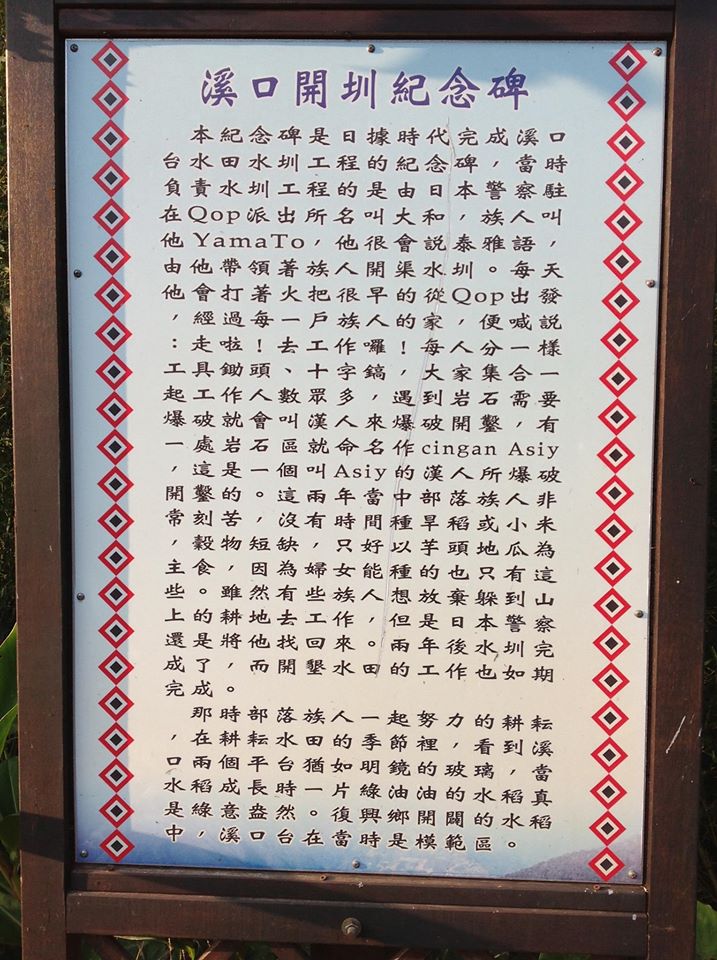 溪口開圳紀念碑
本紀念碑是日據時代完成溪口
台水田水圳工程的紀念碑，當時
負責水圳工程的是由日本警察駐
在Qop派出所名叫大和，族人叫
他YamaTo，他很會說泰雅語，
由他帶領著族人開渠水圳。每天
他會打著火把很早的從Qop出發
，經過每一戶族人的家，便喊說
：走啦！去工作囉！每人分一樣
工具鋤頭、十字鎬，大家集合一
起工作人數眾多，遇到岩石需要
爆破就會叫漢人來爆破開鑿，有
一處岩石區就命名作cingan Asiy
，這是一個叫Asiy的漢人所爆破
開鑿的。這兩年當中部落族人非
常刻苦，沒有時間種旱稻或小米
，穀物短缺，只好以芋頭地瓜為
主食。因為婦女能種的也只有這
些，雖然有些族人想放棄躲到山
上的耕地去工作，但是日本警察
還是將他找回來。兩年後水圳完
成了，而開墾水田的工作也如期
完成。
那時部落族人一起努力的耕耘
，在耕耘水田的季節裡，看到溪
口兩個平台猶如明鏡的玻璃，當
水稻成長時一片綠油油的水稻真
是綠意盎然。復興鄉開闢的水稻
中，溪口台在當時是模範區。